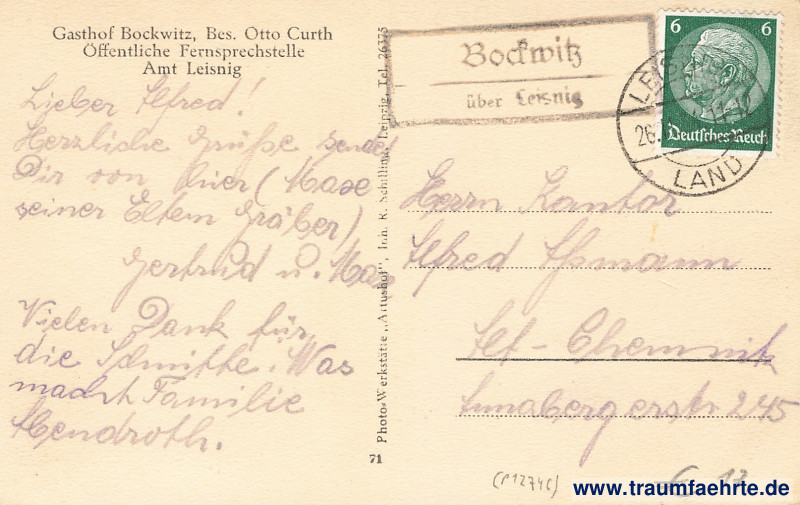 Gasthof Bockwitz, Bes. Otto Curth
Öffentliche Fernsprechstelle
Amt Leisnig
Lieber Alfred!
Herzliche Grüße sendet
Dir von hier (Maxe
seiner Eltern Gräber)
Gertrud u. Maxe
Vielen Dank für
die Schnitte. Was
macht Familie
Photo-Werkstätte „Artushof", Inh. R. Schilling, Leipzig, Tel. 26375
71
Bockwitz
über Leisnig
6 6
Deutsches Reich
26.
LAND
Herrn Kantor
Alfred Aßmann
Alt-Chemnitz
Annabergerstr 245
(P1274C)
17
www.traumfaehrte.de